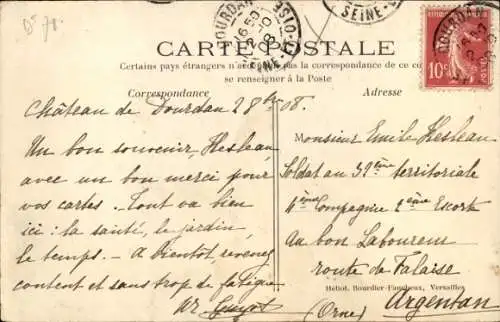 Dt 78.
DOURDAN
16 50
2 -10
08
SEINE-ET-OISE
SEINE-
CARTE POSTALE
Certains pays étrangers n'acceptent pas la correspondance de ce cô
se renseigner à la Poste
Correspondance
Adresse
DOURDAN
10c
Château de Dourdan 2 8bre 08.
Un bon souvenir, Hesleau
avec un bon merci pour
vos cartes. Tout va bien
ici : la santé, le jardin
le temps. - A bientôt revenez
content et sans trop de fatigue
Guyot
Monsieur Emile Hesleau
Soldat au 32ème territoriale
4ème Compagnie 2ème Escort
au bon Laboureur
route de Falaise
Héliot. Bourdier-Faucheux, Versailles
Argentan
(Orne)